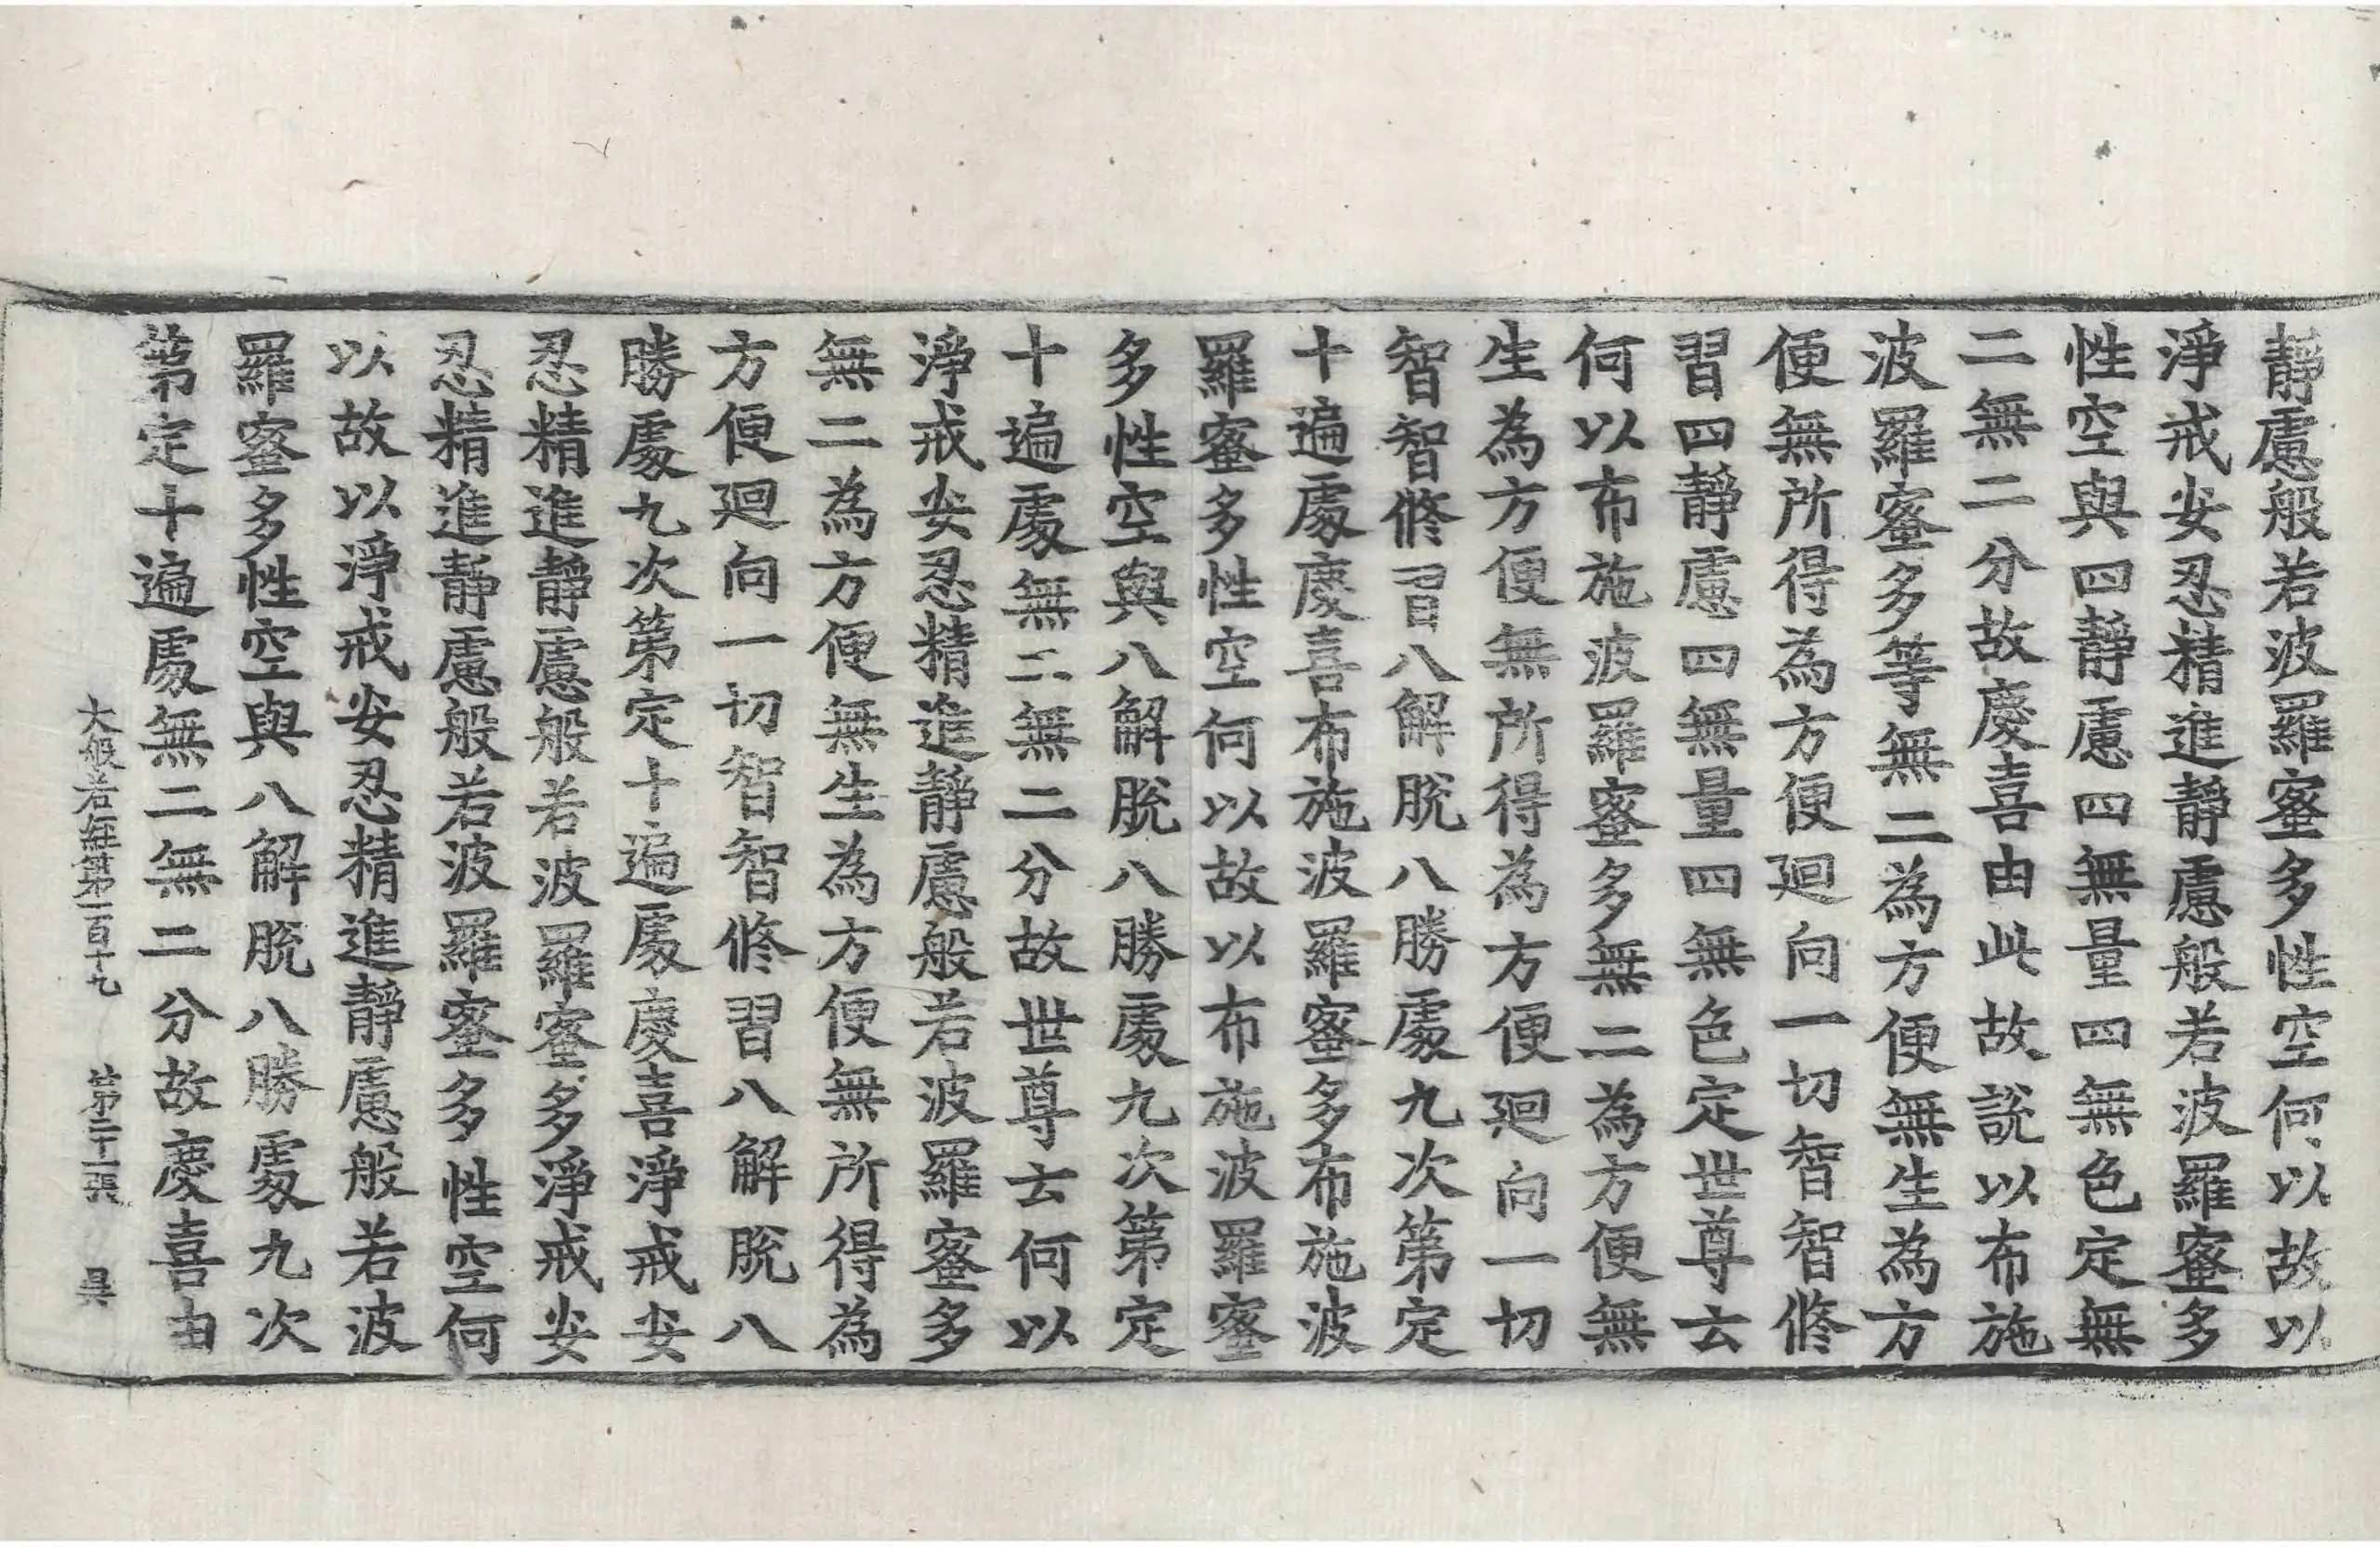 靜慮般若波羅蜜多性空何以故以
淨戒安忍精進靜慮般若波羅蜜多
性空與四靜慮四無量四無色定無
二無二分故慶喜由此故說以布施
波羅蜜多等無二為方便無生為方
便無所得為方便廻向一切智智修
習四靜慮四無量四無色定世尊云
何以布施波羅蜜多無二為方便無
生為方便無所得為方便廻向一切
智智修習八解脫八勝處九次第定
十遍處慶喜布施波羅蜜多布施波
羅蜜多性空何以故以布施波羅蜜
多性空與八解脫八勝處九次第定
十遍處無二無二分故世尊云何以
淨戒安忍精進靜慮般若波羅蜜多
無二為方便無生為方便無所得為
方便廻向一切智智修習八解脫八
勝處九次第定十遍處慶喜淨戒安
忍精進靜慮般若波羅蜜多淨戒安
忍精進靜慮般若波羅蜜多性空何
以故以淨戒安忍精進靜慮般若波
羅蜜多性空與八解脫八勝處九次
第定十遍處無二無二分故慶喜由
大般若經第一百十九 第二十一張 昃